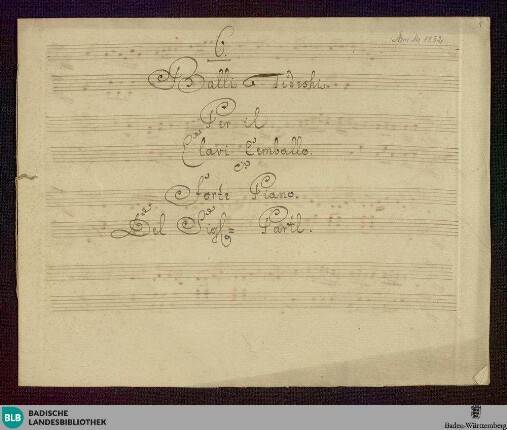 6.
Balli Tedeschi.
Per il
Clavi Cemballo.
o
Forte Piano.
Del Sigl: Partl.
BLB
BADISCHE
LANDESBIBLIOTHEK
Baden-Württemberg